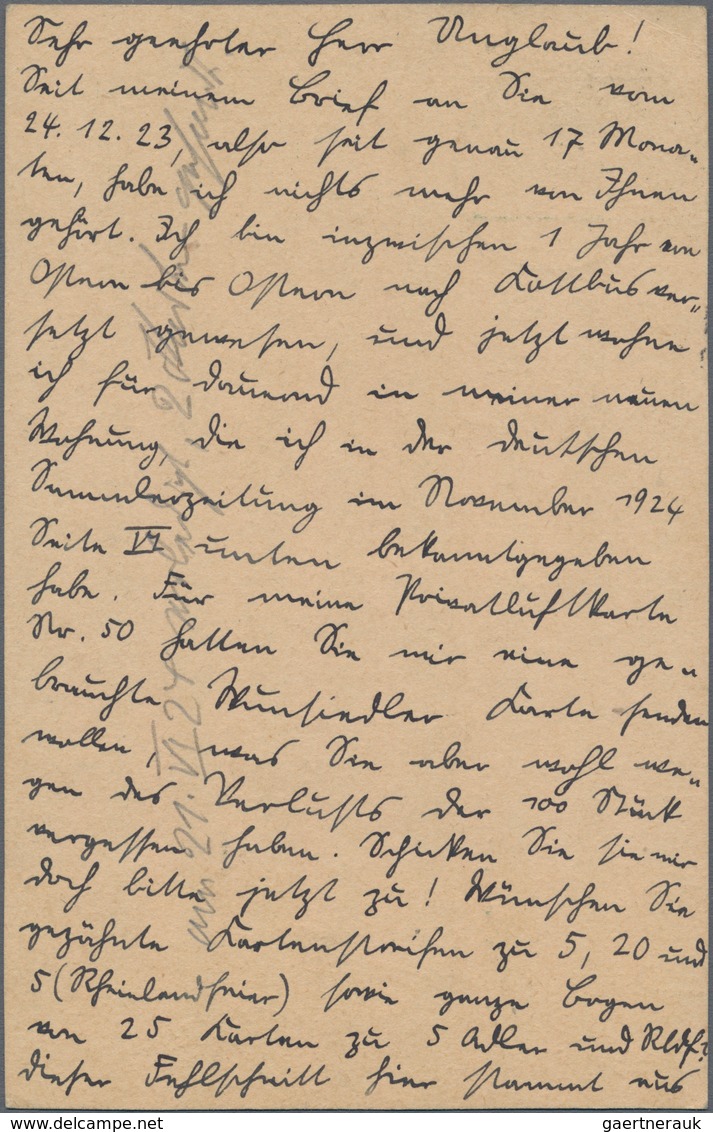 Sehr geehrter Herr Unglaub!
Seit meinem Brief an Sie vom
24. 12. 23, also seit genau 17 Mona-
ten, habe ich nichts mehr von Ihnen
gehört. Ich bin inzwischen 1 Jahr von
Ostern bis Ostern nach Kottbus ver-
setzt gewesen, und jetzt wohne
ich für dauernd in meiner neuen
Wohnung, die ich in der deutschen
Sammlerzeitung im November 1924
Seite VI unten bekanntgegeben
habe. Für meine Privatluftkarte
Nr. 50 hatten Sie mir eine ge-
brauchte Wunsiedler Karte senden
wollen, was Sie aber wohl we-
gen des Verlusts der 100 Stück
vergessen haben. Schicken Sie sie mir
doch bitte jetzt zu! Wünschen Sie
gezähnte Kartenstreifen zu 5, 20 und
5 (Rheinlandfeier) sowie ganze Bogen
von 25 Karten zu 5 Adler und Rldf?
dieser Fehlschnitt hier stammt aus
21. VI 24
gaertnerauk